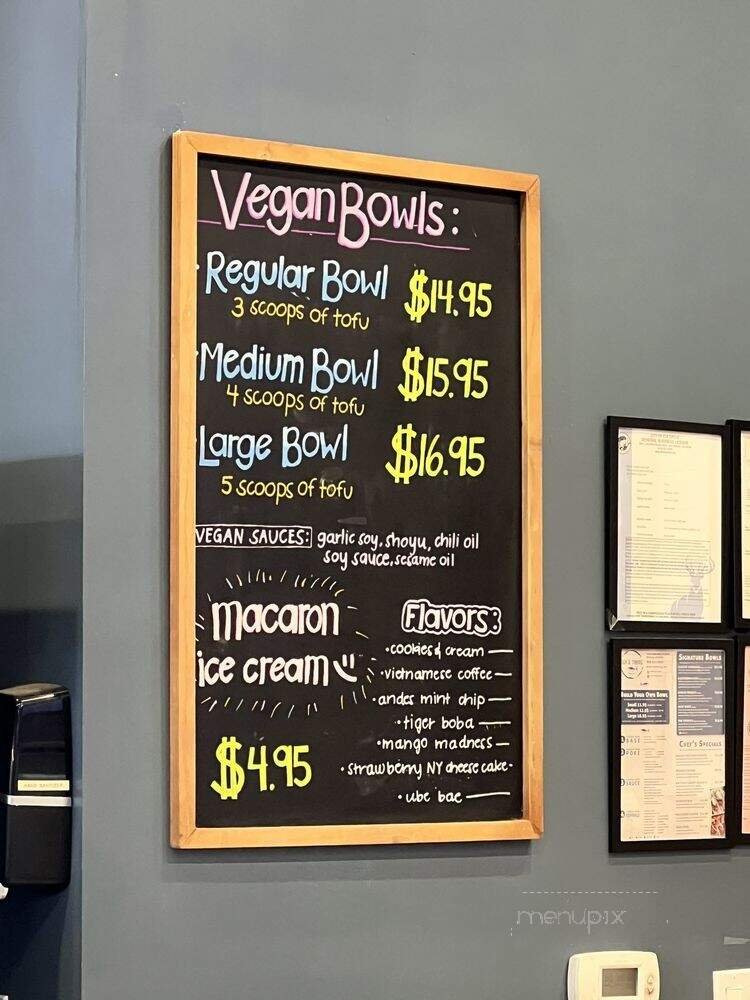 Vegan Bowls:
Regular Bowl $14.95
3 scoops of tofu
Medium Bowl $15.95
4 scoops of tofu
Large Bowl $16.95
5 scoops of tofu
VEGAN SAUCES: garlic soy, shoyu, chili oil
soy sauce, sesame oil
macaron
ice cream
$4.95
Flavors:
• cookies & cream
• vietnamese coffee
• andes mint chip
• tiger boba
• mango madness
• strawberry NY cheese cake
• ube bae
SIGNATURE BOWLS
BUILD YOUR OWN BOWL
CHEF'S SPECIALS
menupix